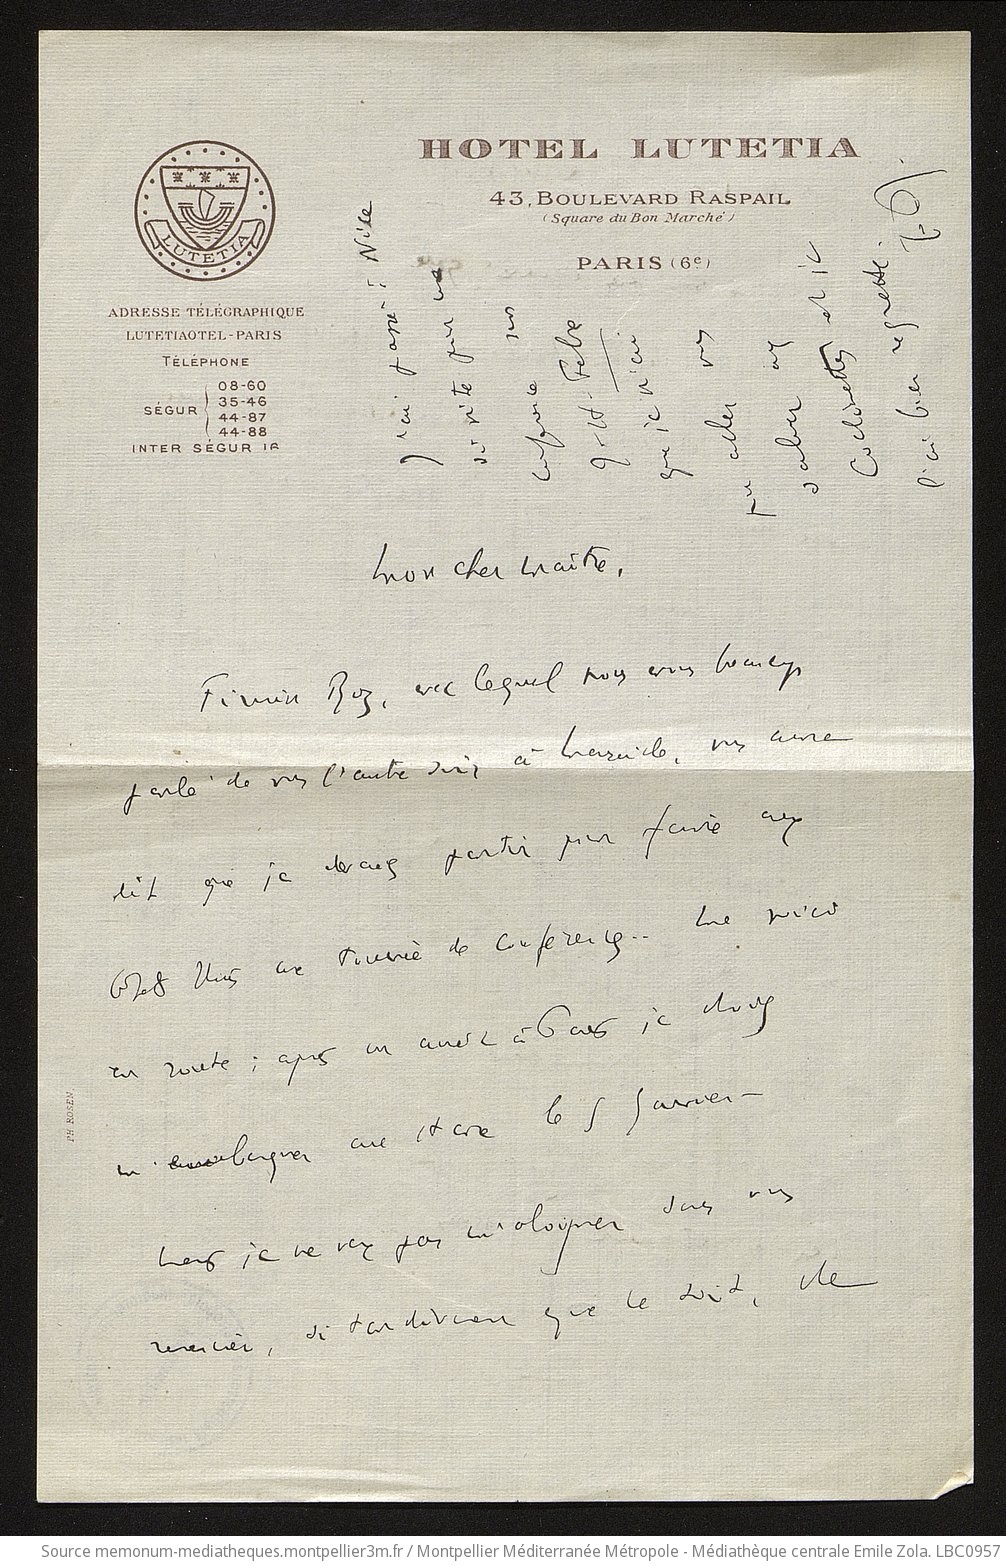 HOTEL LUTETIA
43, BOULEVARD RASPAIL
(Square du Bon Marché)
PARIS (6e)
LUTETIA
ADRESSE TÉLÉGRAPHIQUE
LUTETIAOTEL-PARIS
TÉLÉPHONE
SÉGUR
08-60
35-46
44-87
44-88
INTER SÉGUR 16
Mon cher maître,
Firmin Roz, avec lequel nous avons beaucoup
parlé de vous l'autre soir à Marseille, vous aura
dit que je devais partir pour faire aux
États Unis une tournée de conférences.. Me voici
en route ; après un arrêt à Paris je dois
m'embarquer au Havre le 5 Janvier –
Mais je ne veux pas m'éloigner sans vous
remercier, si tardivement que ce soit, de
J'ai passé à Nice
si vite pour une
conférence sur
que je n'ai
pu aller vous
saluer aux
Collinettes et je
l'ai bien regretté.
PH. ROSEN.
Source memonum-mediatheques.montpellier3m.fr / Montpellier Méditerranée Métropole - Médiathèque centrale Emile Zola. LBC0957